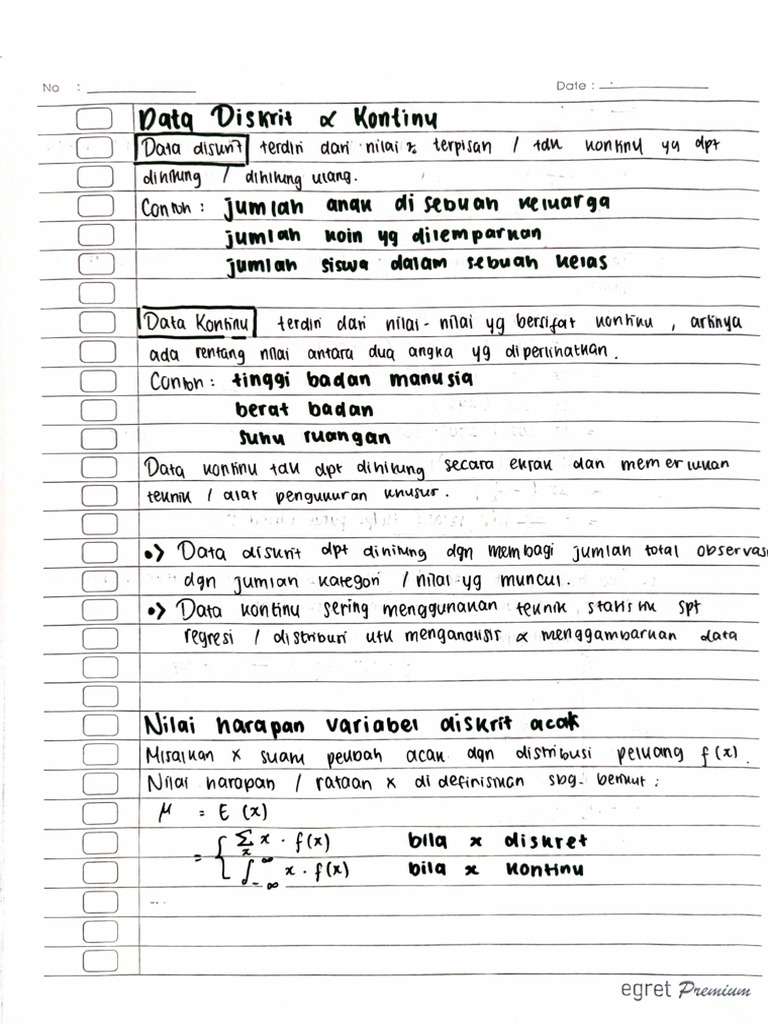 No :
Date :
Data Diskrit & Kontinu
Data diskrit terdiri dari nilai2 terpisah / tdk kontinu yg dpt
dihitung / dihitung ulang.
Contoh : jumlah anak di sebuah keluarga
jumlah koin yg dilemparkan
jumlah siswa dalam sebuah kelas
Data Kontinu terdiri dari nilai-nilai yg bersifat kontinu, artinya
ada rentang nilai antara dua angka yg diperlihatkan.
Contoh : tinggi badan manusia
berat badan
suhu ruangan
Data kontinu tdk dpt dihitung secara eksak dan memerlukan
teknik / alat pengukuran khusus.
•> Data diskrit dpt dihitung dgn membagi jumlah total observasi
dgn jumlah kategori / nilai yg muncul.
•> Data kontinu sering menggunakan teknik statistik spt
regresi / distribusi utk menganalisis & menggambarkan data
Nilai harapan variabel diskrit acak
Misalkan x suatu peubah acak dgn distribusi peluang f(x).
Nilai harapan / rataan x didefinisikan sbg. berikut :
μ = E (x)
= { ∑x x · f(x) bila x diskret
∫-∞^∞ x · f(x) bila x kontinu
egret Premium